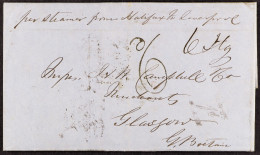 per steamer from Halifax to Liverpool
6 Stg
Messrs J & W Campbell & Co
Merchants
Glasgow
G. Britain